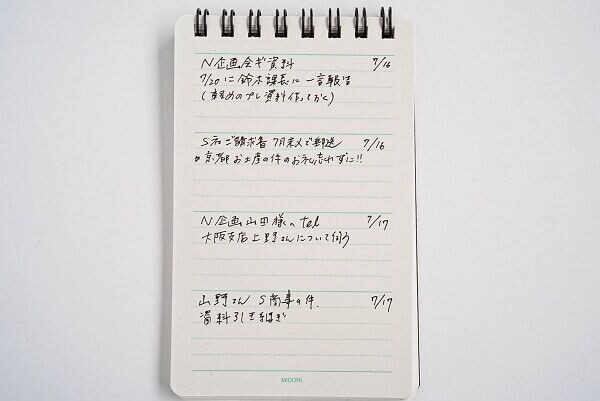 N企画会ギ資料 7/16
7/20に鈴木課長に一言報告
(まとめのプレ資料作っておく)
S社ご請求書7月末〆で郵送 7/16
京都お土産の件のお礼忘れずに!!
N企画山田様へtel 7/17
大阪支店上野さんについて伺う
山野さん S商事の件. 7/17
資料引き継ぎ
MIDORI